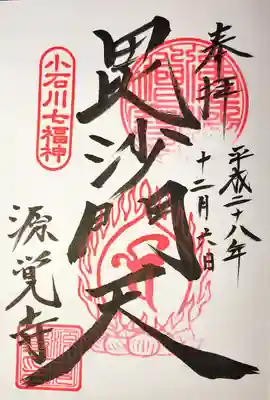 奉拝
平成二十八年
十二月六日
毘沙門天
小石川七福神
源覚寺